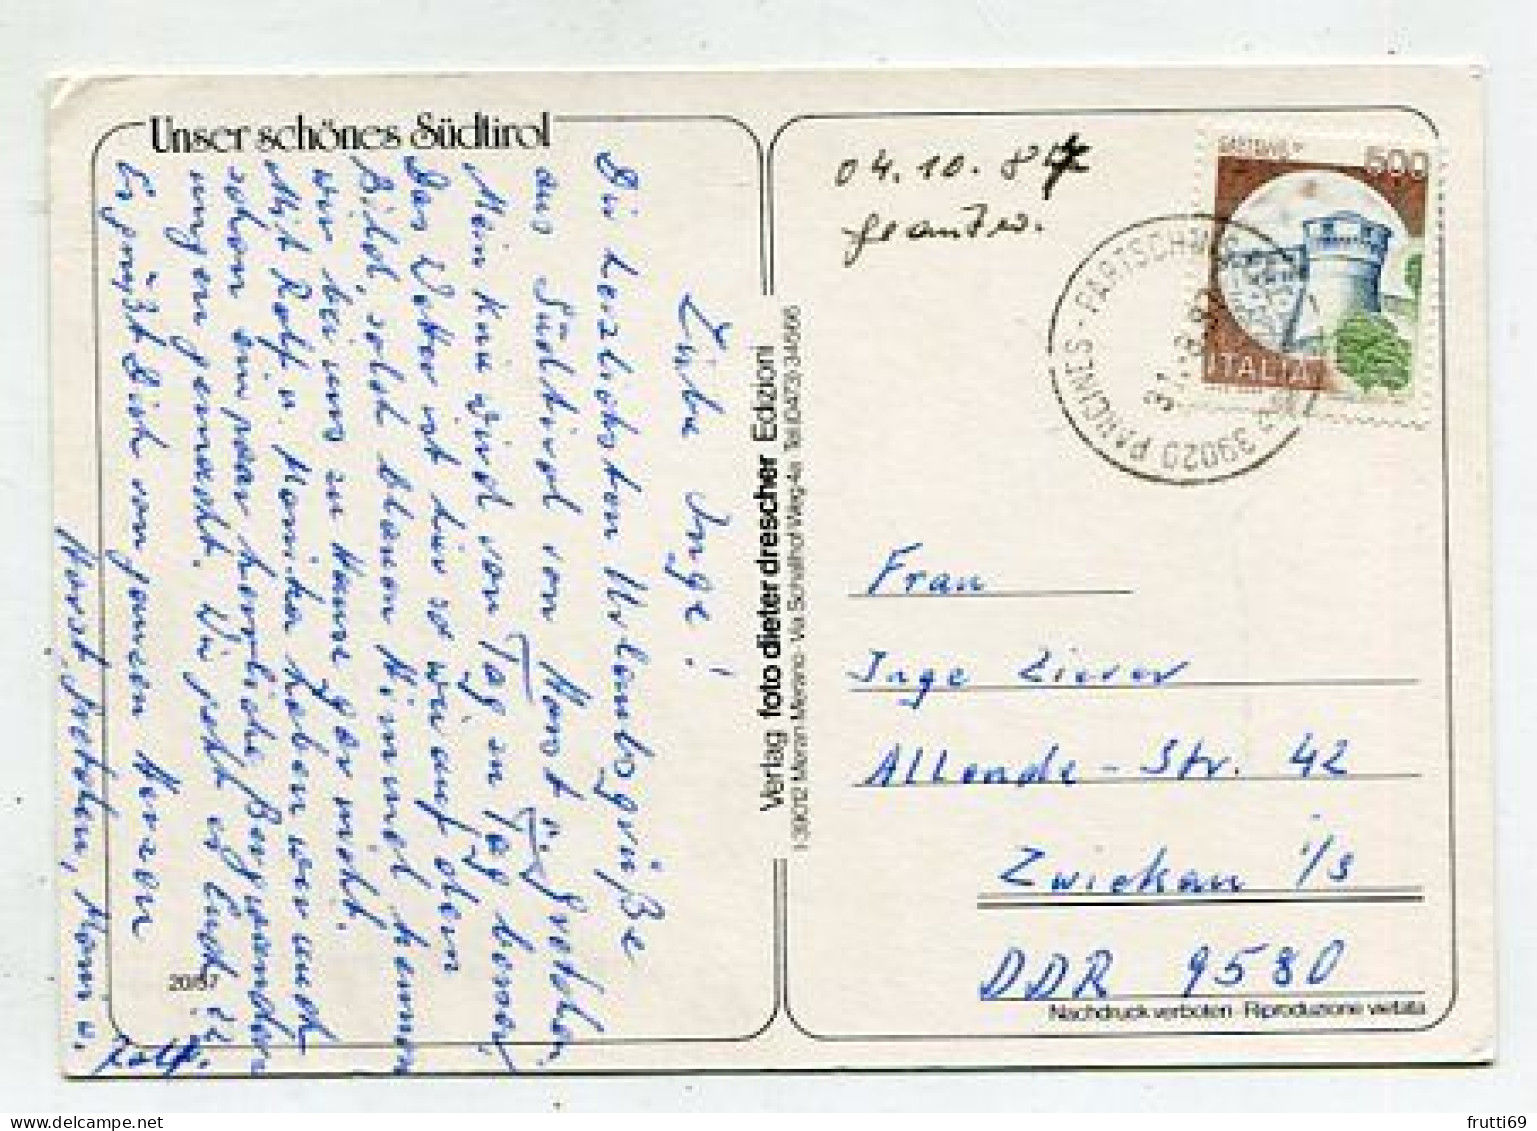 Unser schönes Südtirol
Liebe Inge!
Die herzlichsten Urlaubsgrüße
aus Südtirol von Horst u. Gretchen.
Mein Knie wird von Tag zu Tag besser,
Das Wetter ist hier so wie auf dem
Bild, solch blauen Himmel kennen
wir bei uns zu Hause gar nicht.
Mit Rolf u. Monika haben wir auch
schon ein paar herrliche Bergwander
ungen gemacht. Wie geht es Euch
Es grüßt Dich von ganzem Herzen
Horst, Gretchen, Moni u.
Rolf.
20/57
Verlag foto dieter drescher Edizioni
I-39012 Meran Merano · Via Schallhof Weg 4a Tel. (0473) 34566
04.10.87
geantw.
500
ITALIA
39020 PARCINES · PARTSCHINS
31-8-87
Frau
Inge Zierer
Allende-Str. 42
Zwickau i/S
DDR 9580
Nachdruck verboten · Riproduzione vietata
frutti69